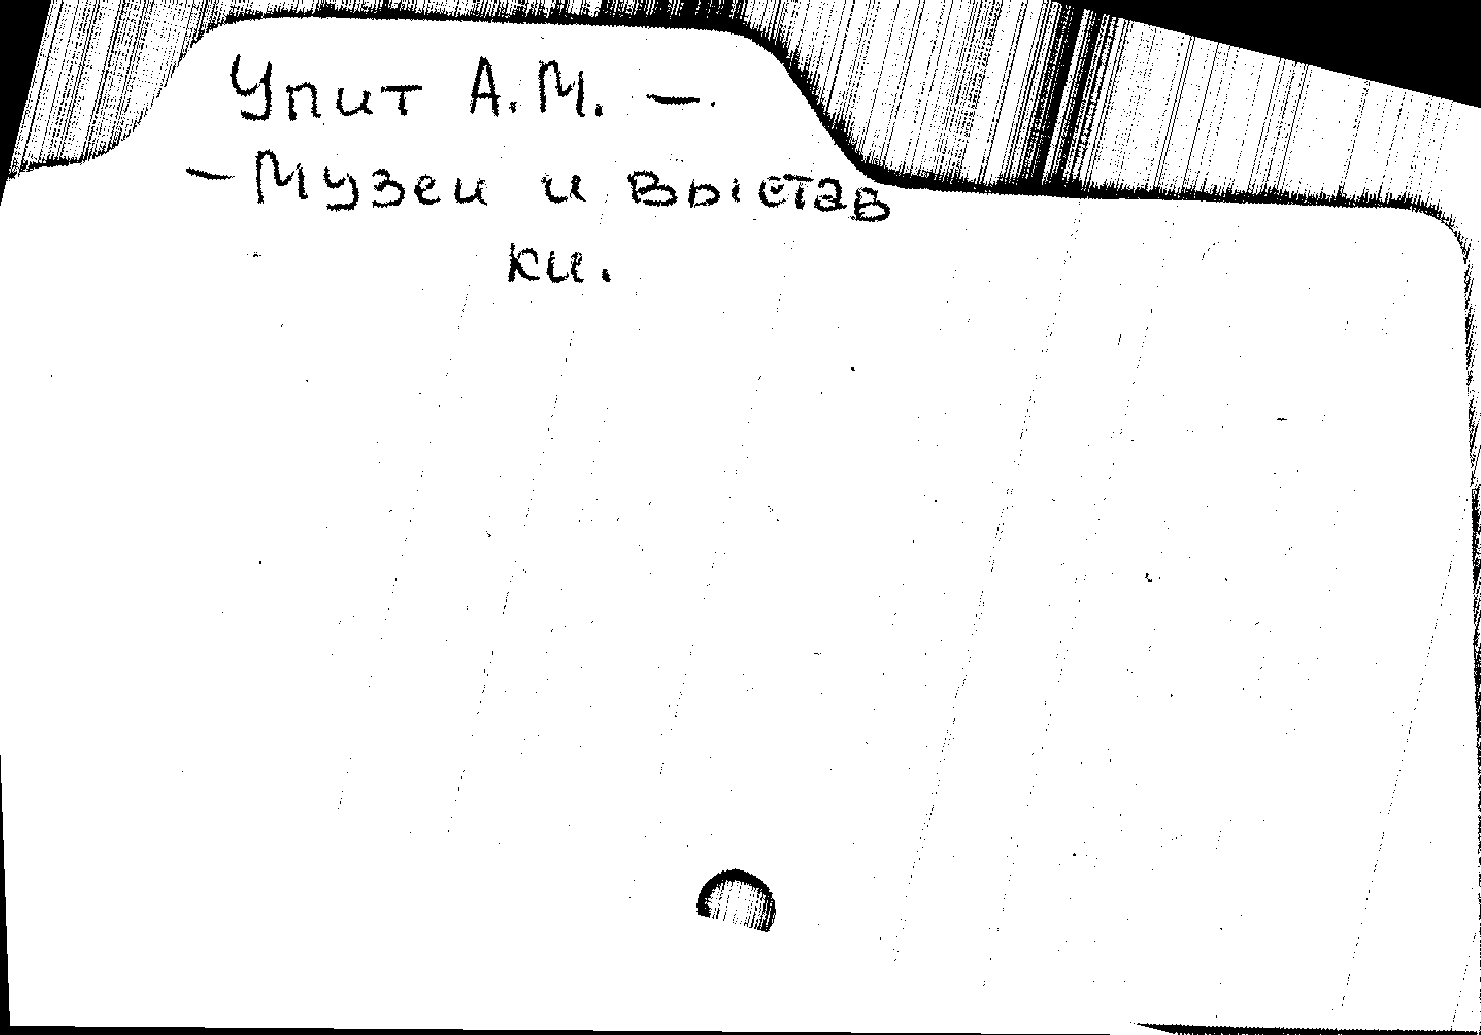 Упит А.М. —.
— Музеи и выстав
ки.